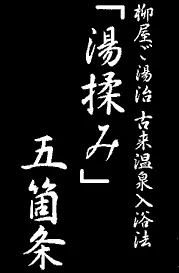 柳屋ご湯治 古来温泉入浴法
「湯揉み」
五箇条